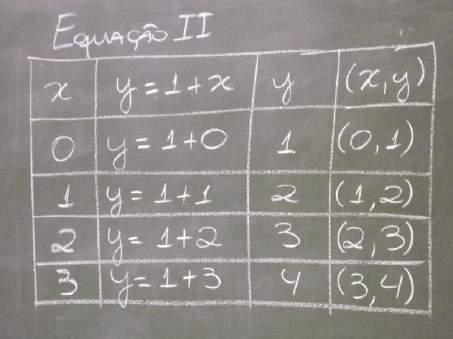 Equação II
x y = 1 + x y (x, y)
0 y = 1 + 0 1 (0, 1)
1 y = 1 + 1 2 (1, 2)
2 y = 1 + 2 3 (2, 3)
3 y = 1 + 3 4 (3, 4)